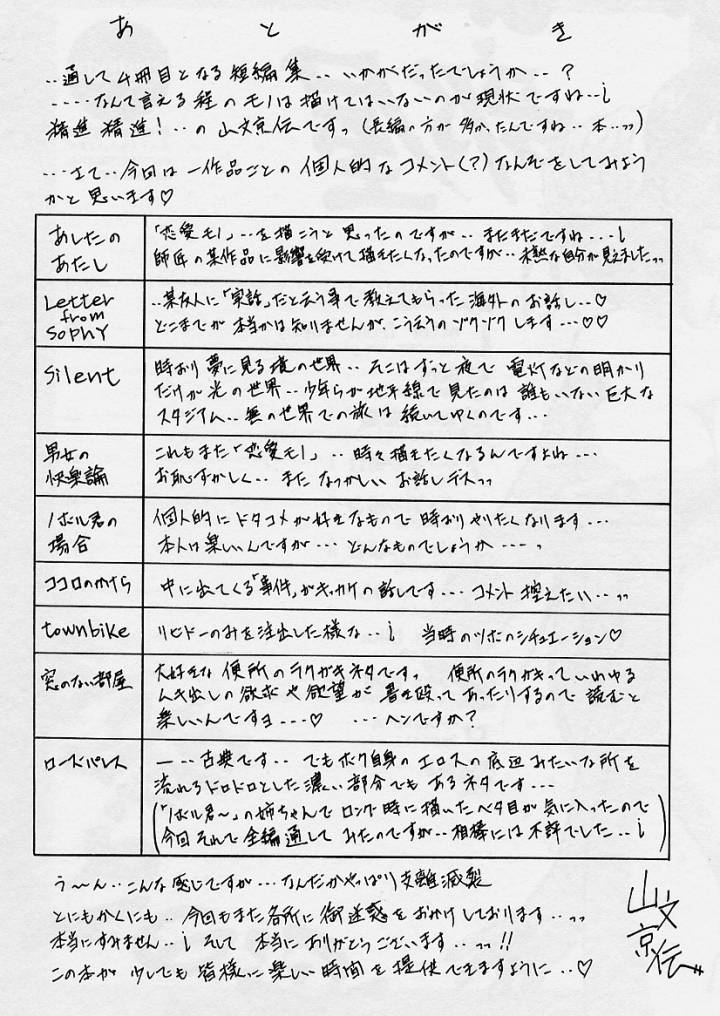 あとがき
‥通して4冊目となる短編集‥いかがだったでしょうか‥?
‥‥なんて言える程のモノは描けてはいないのが現状ですね‥¡
精進 精進!‥の山文京伝ですっ(長編の方が多かったんですね‥本‥ッッ)
‥さて‥今回は一作品ごとの個人的なコメント(?)なんぞをしてみよう
かと思います♡
あしたの
あたし
「恋愛モノ」‥を描こうと思ったのですが‥まだまだですね‥¡
師匠の某作品に影響を受けて描きたくなったのですが‥未熟な自分が見えましたッッ
Letter
from
SOPHY
‥某友人に「実話」だと云う事で教えてもらった海外のお話し‥♡
どこまでが本当かは知りませんが、こう云うのゾクゾクします‥♡♡
Silent
時おり夢に見る境の世界‥そこはずっと夜で 電灯などの明かり
だけが光の世界‥少年らが地平線で見たのは誰もいない巨大な
スタジアム‥無の世界での旅は続いてゆくのです‥
男女の
快楽論
これもまた「恋愛モノ」‥時々描きたくなるんですよね‥
お恥ずかしく‥また なつかしい お話しデスッッ
ノボル君の
場合
個人的にドタコメが好きなもので時おりやりたくなります‥
本人は楽しいんですが‥どんなものでしょうか‥っ
ココロの
中に出てくる「事件」がキッカケの話しです‥コメント控えたい‥ッッ
townbike
リビドーのみを注出した様な‥¡ 当時のツボのシチュエーション♡
窓のない部屋
大好きな便所のラクガキネタですっ 便所のラクガキっていわゆる
ムキ出しの欲求や欲望が書き殴ってあったりするので読むと
楽しいんですヨ‥♡ ‥ヘンですか?
ロードパレス
‥古典です‥でもボク自身のエロスの底辺みたいな所を
流れるドロドロとした濃い部分でもあるネタです‥
(「ノボル君〜」の姉ちゃんでロング時に描いたベタ目が気に入ったので
今回それで全編通してみたのですが‥相棒には不評でした‥¡)
う〜ん‥こんな感じですが‥なんだかやっぱり支離滅裂
とにもかくにも‥今回もまた各所に御迷惑をおかけしております‥ッッ
本当にすみません‥¡ そして 本当にありがとうございます‥ッッ!!
この本が少しでも皆様に楽しい時間を提供できますように‥♡
山文
京伝